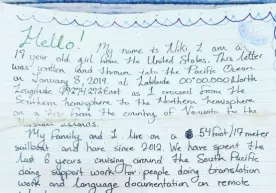 Hello! My name is Niki, I am a
17 year old girl from the United States. This letter
was written and thrown into the Pacific Ocean
on January 8, 2019. at Latitude 00°00.000 North
Longitude East as I crossed from the
Southern hemisphere to the Northern hemisphere
on a from the country of Vanuatu to the
Islands.
My family and I live on a 54foot/17meter
sailboat and have since 2012. We have spent the
last 6 years cruising around the South Pacific
doing support work for people doing translation
work and language documentation on remote